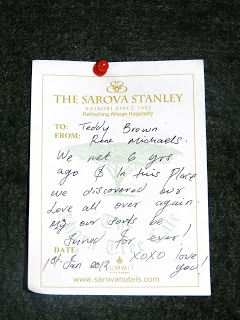 THE SAROVA STANLEY
NAIROBI SINCE 1902
Refreshing African Hospitality
TO: Teddy Brown
FROM: Rene Michaels.
We met 6 yrs
ago & in this place
we discovered our
Love all over again.
My our souls be
joined for ever!
DATE: XOXO love
1st Jan 2012 you!
SUMMIT
www.sarovahotels.com